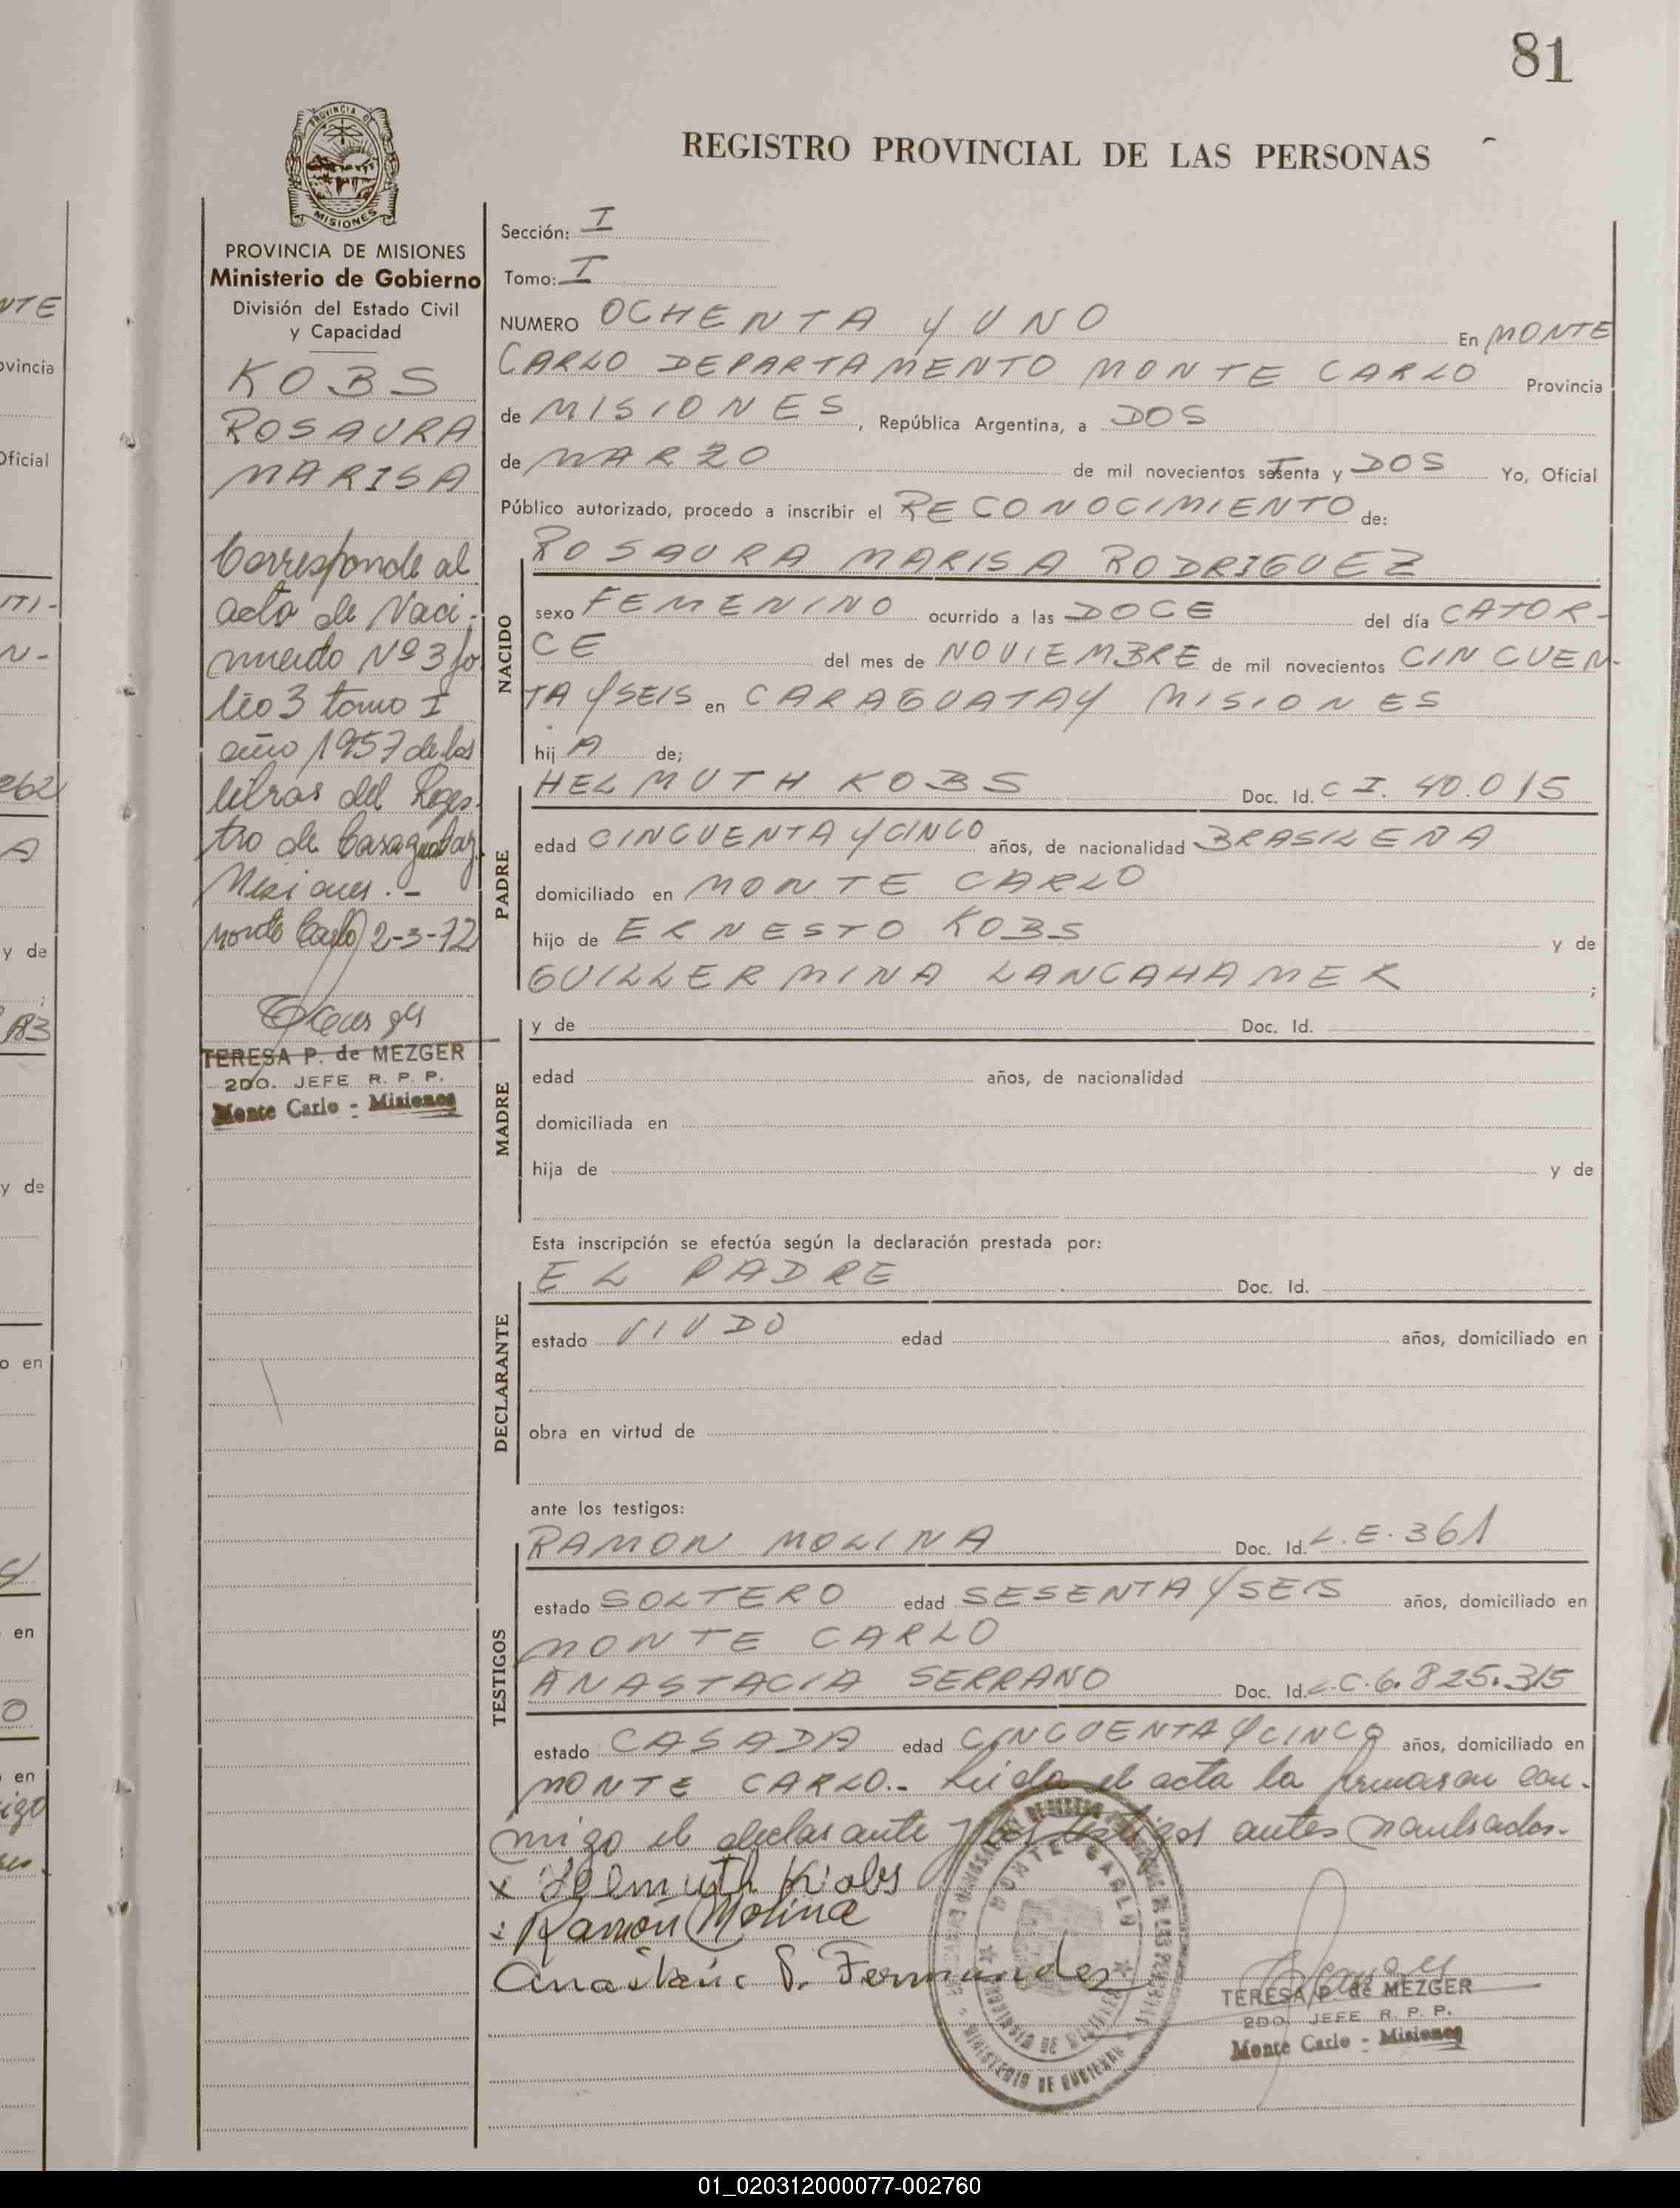 81
REGISTRO PROVINCIAL DE LAS PERSONAS
PROVINCIA DE MISIONES
PROVINCIA DE MISIONES
Ministerio de Gobierno
División del Estado Civil
y Capacidad
KOBS
ROSAURA
MARISA
Corresponde al
acta de Naci-
miento Nº 3 fo
lio 3 tomo I
año 1957 de los
libros del Regis-
tro de Caraguatay
Misiones.-
Monte Carlo 2-3-72
TERESA P. de MEZGER
2DO. JEFE R. P. P.
Monte Carlo - Misiones
Sección: I
Tomo: I
NUMERO OCHENTA Y UNO En MONTE
CARLO DEPARTAMENTO MONTE CARLO Provincia
de MISIONES, República Argentina, a DOS
de MARZO de mil novecientos setenta y DOS Yo, Oficial
Público autorizado, procedo a inscribir el RECONOCIMIENTO de:
NACIDO
ROSAURA MARISA RODRIGUEZ
sexo FEMENINO ocurrido a las DOCE del día CATOR-
CE del mes de NOVIEMBRE de mil novecientos CINCUEN-
TA Y SEIS en CARAGUATAY MISIONES
hij A de;
PADRE
HELMUTH KOBS Doc. Id. C I. 40.015
edad CINCUENTA Y CINCO años, de nacionalidad BRASILEÑA
domiciliado en MONTE CARLO
hijo de ERNESTO KOBS y de
GUILLERMINA LANCAHAMER ;
MADRE
y de Doc. Id.
edad años, de nacionalidad
domiciliada en
hija de y de
Esta inscripción se efectúa según la declaración prestada por:
DECLARANTE
EL PADRE Doc. Id.
estado VIUDO edad años, domiciliado en
obra en virtud de
ante los testigos:
TESTIGOS
RAMON MOLINA Doc. Id. L.E. 361
estado SOLTERO edad SESENTA Y SEIS años, domiciliado en
MONTE CARLO
ANASTACIA SERRANO Doc. Id. L.C. 6.825.315
estado CASADA edad CINCUENTA Y CINCO años, domiciliado en
MONTE CARLO.- Leida el acta la firmaron con-
migo el declarante y los testigos antes nombrados.-
x Helmuth Kobs
x Ramón Molina
Anastacia S. Fernandez
MONTE CARLO
PROVINCIA DE MISIONES
MINISTERIO DE GOBIERNO
TERESA P. de MEZGER
2DO. JEFE R. P. P.
Monte Carlo - Misiones
NTE
ovincia
Oficial
MI-
N-
262
A
y de
;
183
y de
o en
en
O
en
igo
01_020312000077-002760